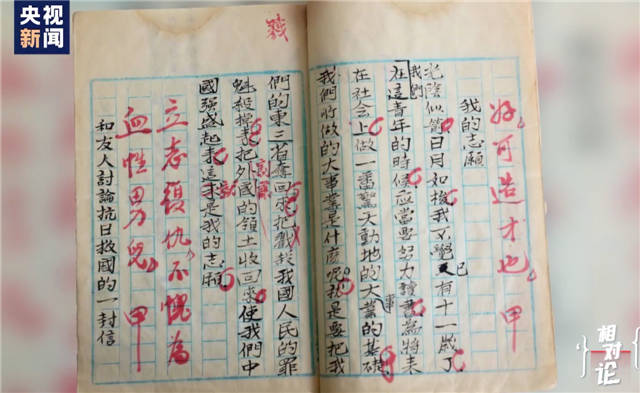 央视新闻
好可造才也 甲
我的志願
光陰似箭日月如梭我不覺已有十一歲了
我們
在這青年的時候應當要努力讀書為將來
在社會上做一番驚天動地的大業的基礎
事
我們所做的大事業是什麼呢就是要把我
們的東三省奪回來把我國人民的罪
魁殺掉把外國的領土收回來使我們中
國强盛起來這才是我的志願
立志復仇不愧為
血性男兒 甲
和友人討論抗日救國的一封信
相对论